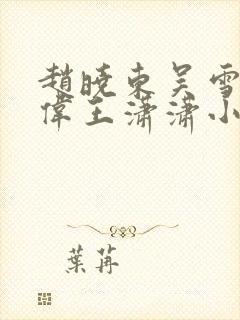 趙曉東吳雪
偉王瀟瀟小
葉苒